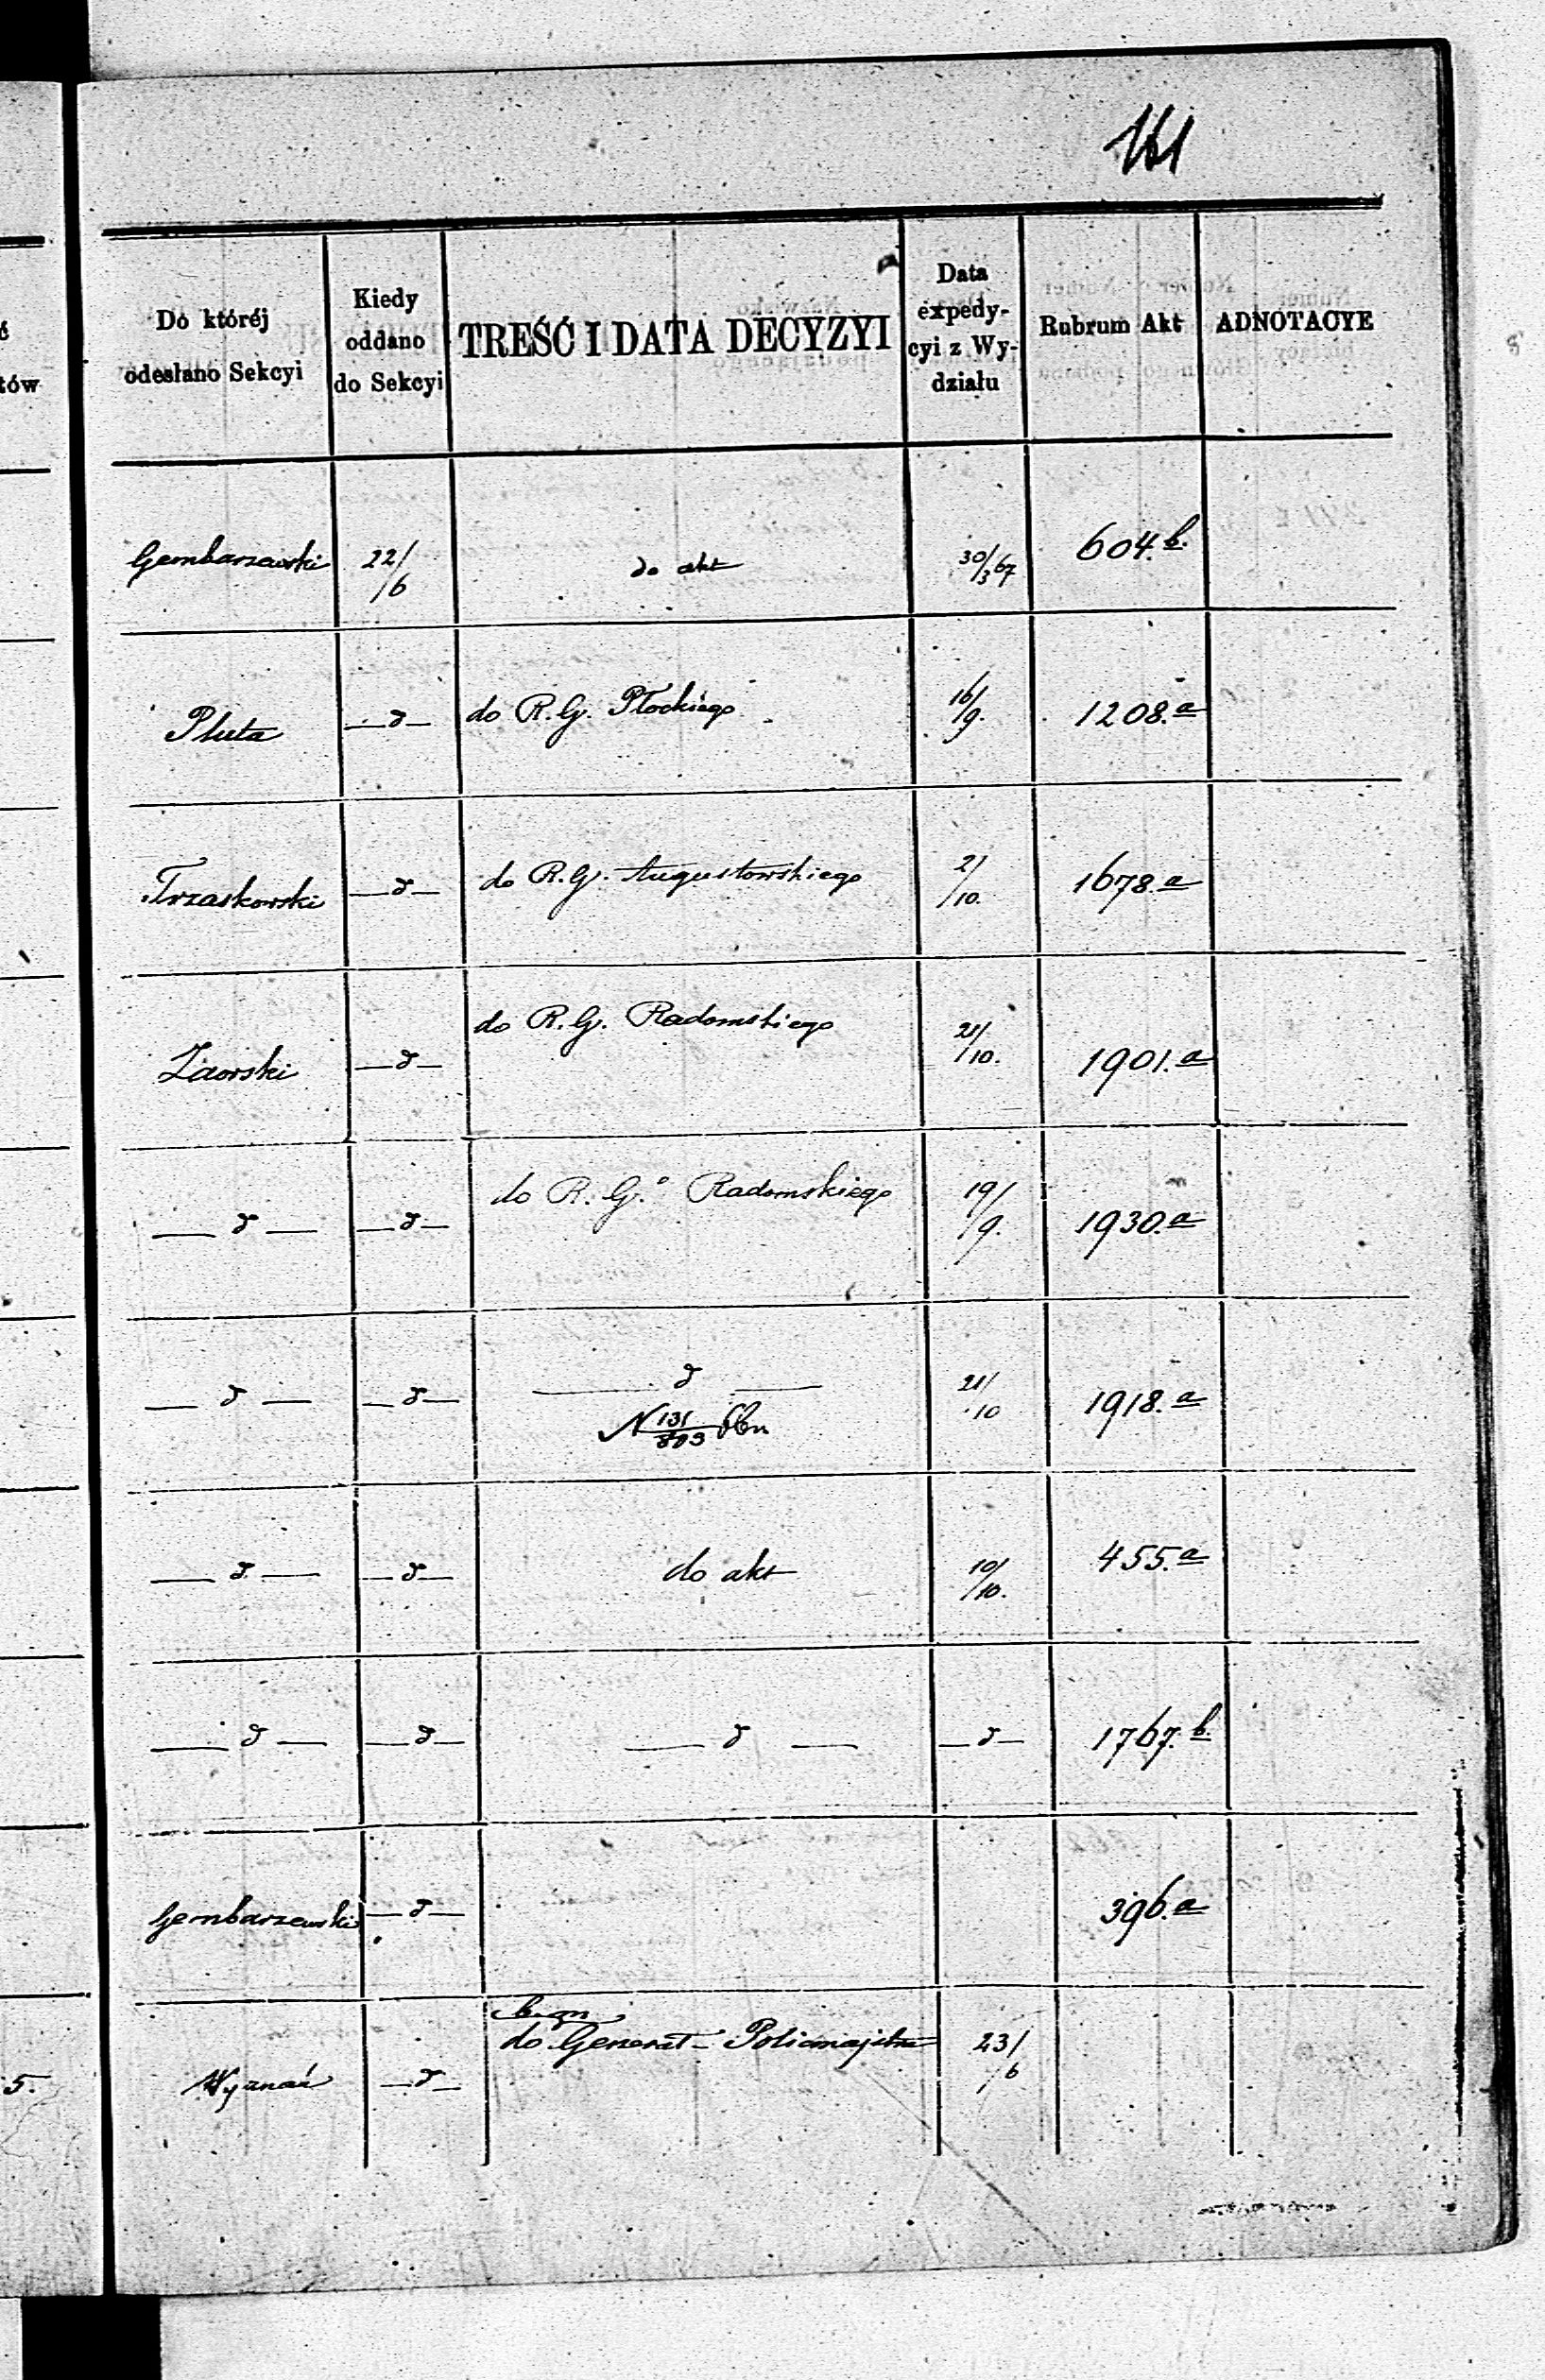 161
Do któréj odesłano Sekcyi | Kiedy oddano do Sekcyi | TREŚĆ I DATA DECYZYI | Data expedycyi z Wydziału | Rubrum Akt | ADNOTACYE
Gembarzewski | 22/6 | do akt | 30/3 67 | 604.b.
Pluta | —d— | do R.G. Płockiego | 16/9. | 1208.a
Trzaskowski | —d— | do R.G. Augustowskiego | 21/10. | 1678.a
Zaorski | —d— | do R.G. Radomskiego | 21/10. | 1901.a
—d— | —d— | do R.G. Radomskiego | 19/9. | 1930.a
—d— | —d— | —d— | 21/10 | 1918.a
N 131/803
—d— | —d— | do akt | 10/10. | 455.a
—d— | —d— | —d— | —d— | 1767.b.
Gembarzewski | —d— | 396.a
Wyznań | —d— | do Generał-Policmajstra | 23/6
5.